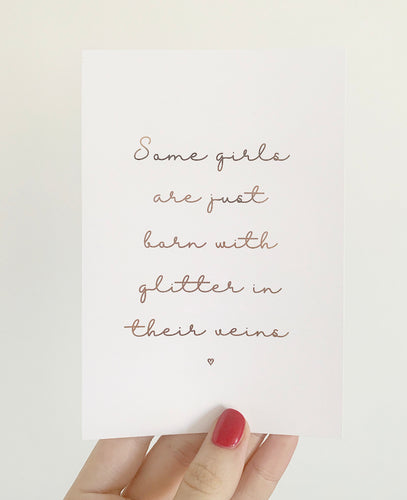 Some girls
are just
born with
glitter in
their veins